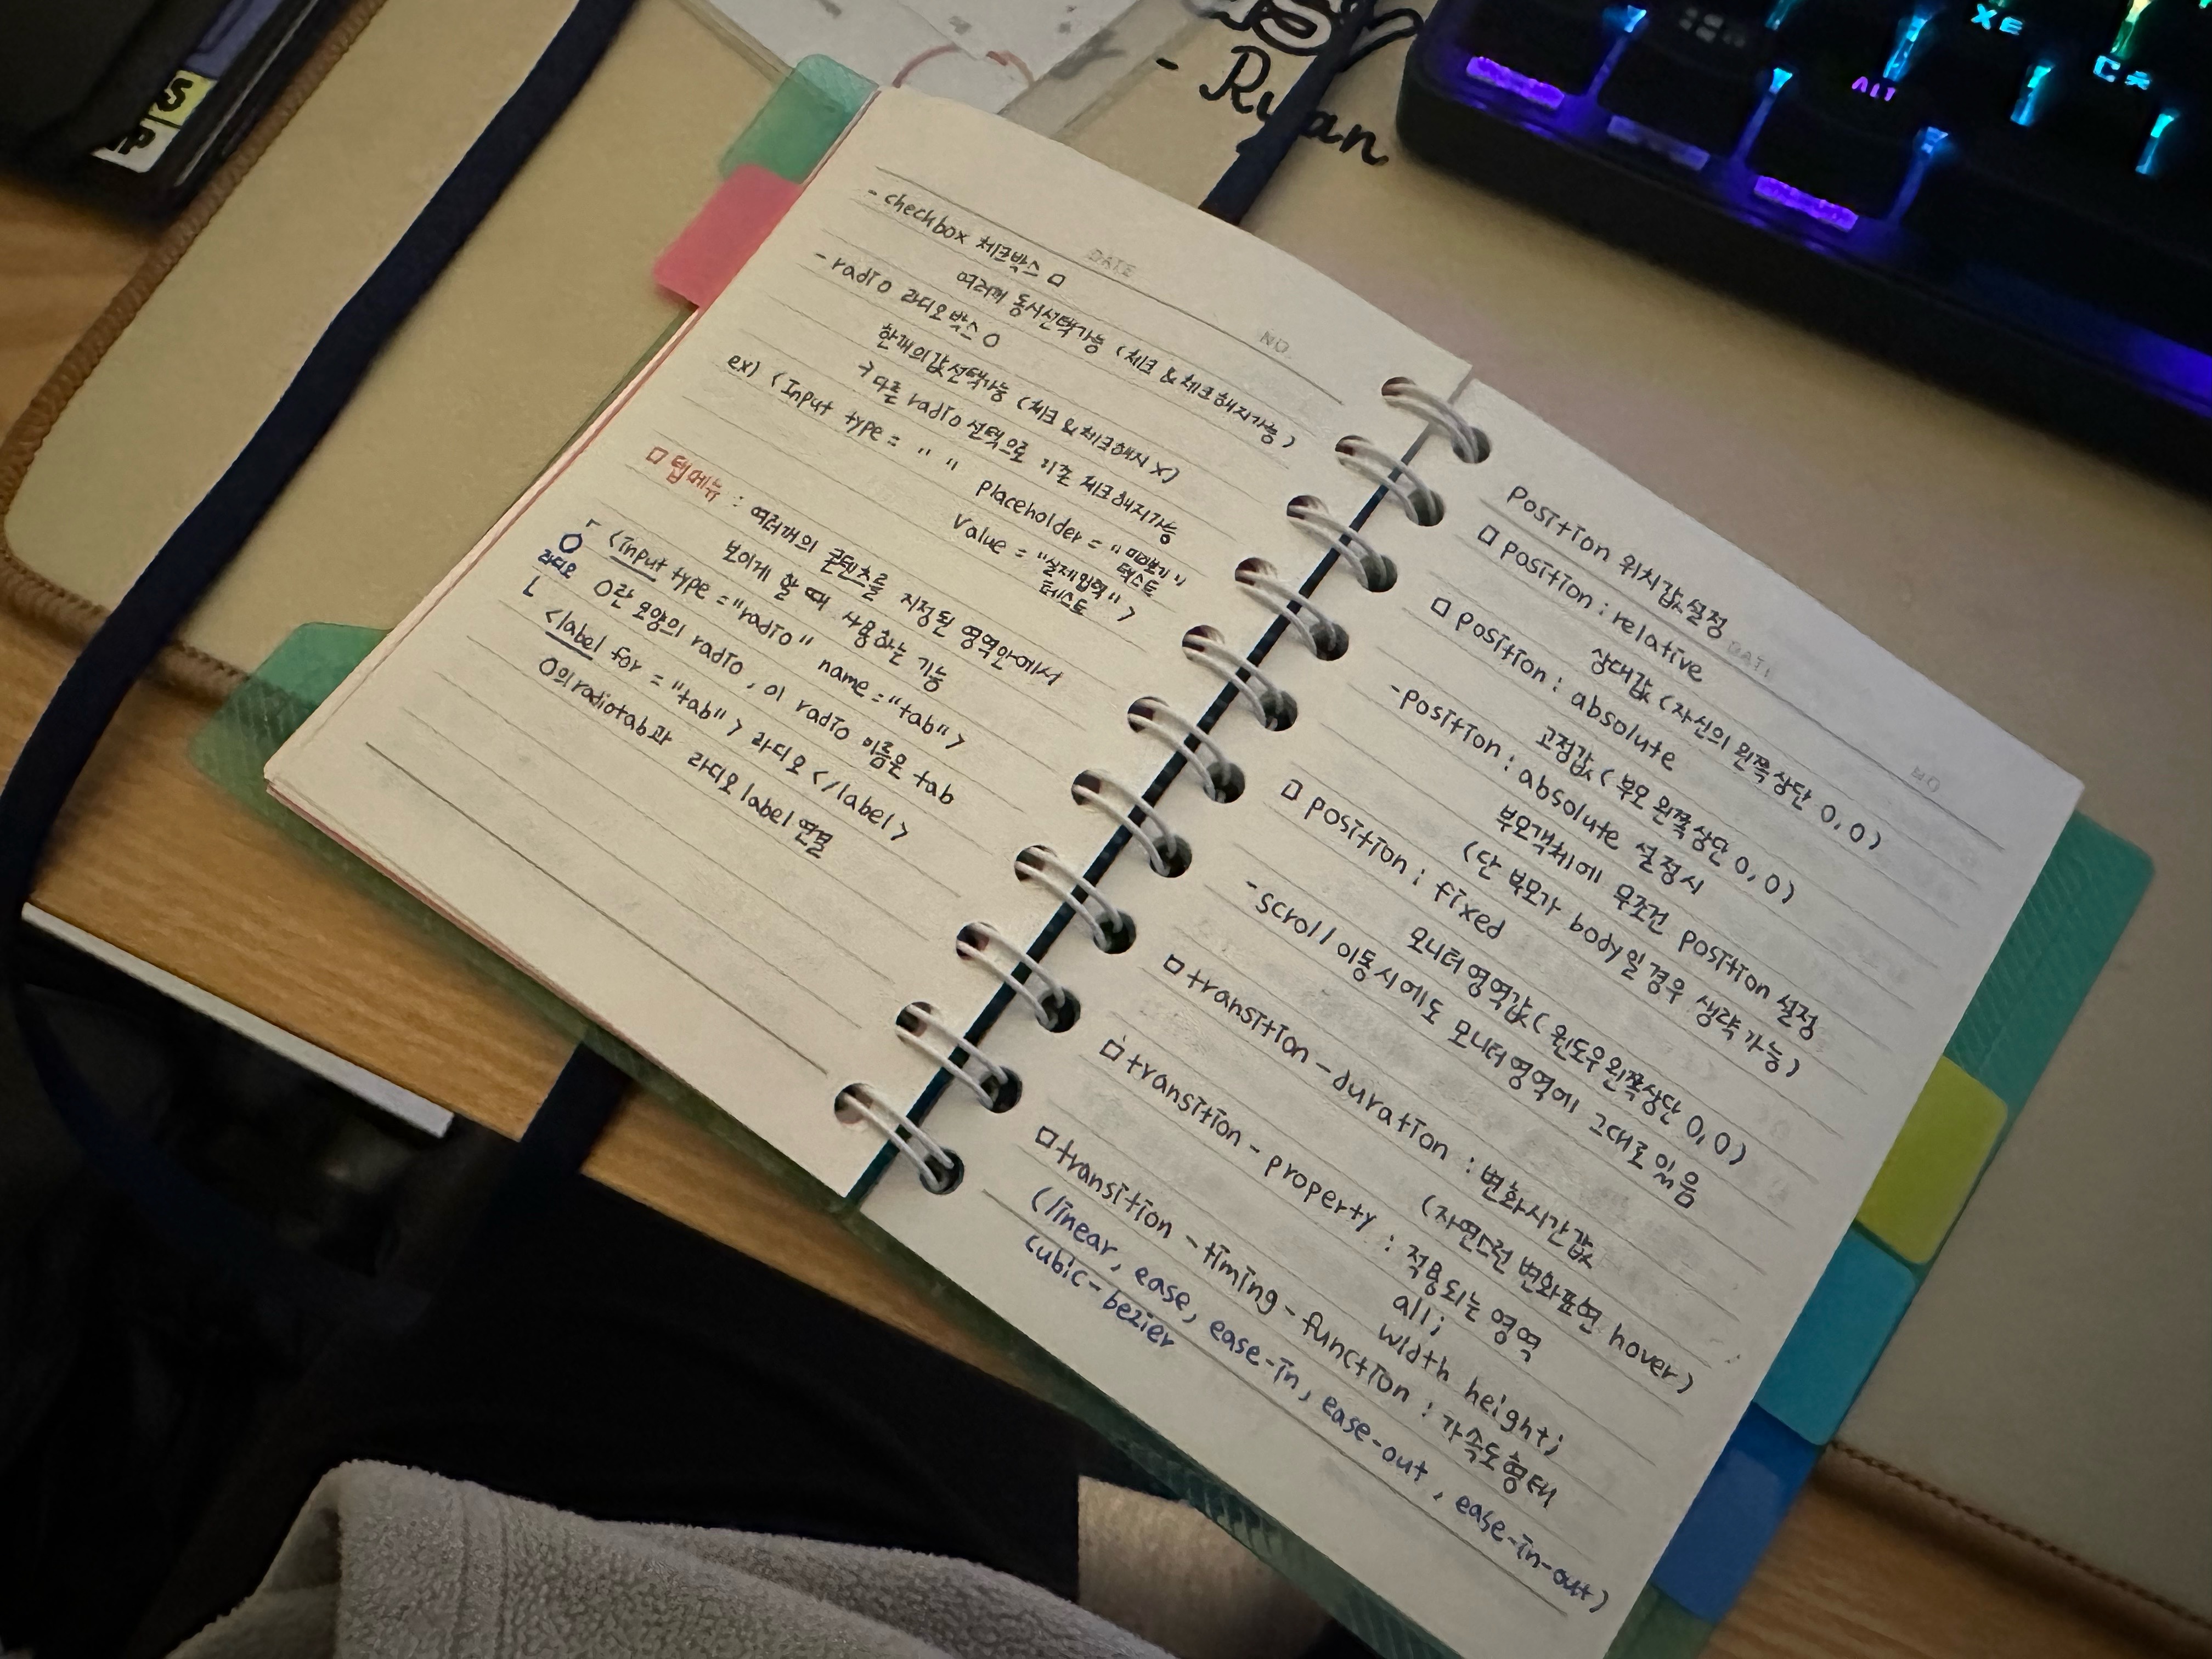 - checkbox 체크박스 □
여러개 동시선택가능 (체크 & 체크해지가능)
- radio 라디오박스 O
한개의값선택가능 (체크 & 체크해지 X)
→ 다른 radio 선택으로 기존 체크해지가능
ex) <Input type = " "
placeholder = "미리보기"
텍스트
Value = "실제입력">
테스트
□ 탭메뉴 : 여러개의 콘텐츠를 지정된 영역안에서
보이게 할 때 사용하는 기능
O
라디오
<input type = "radio" name = "tab">
O란 모양의 radio, 이 radio 이름은 tab
<label for = "tab"> 라디오 </label>
O의 radiotab과 라디오 label 연결
DATE
NO.
Position 위치값설정
□ position : relative
상대값 (자신의 왼쪽상단 0,0)
□ position : absolute
고정값 (부모 왼쪽상단 0,0)
- position : absolute 설정시
부모객체에 무조건 position 설정
(단 부모가 body일 경우 생략가능)
□ position : fixed
모니터영역값 (윈도우왼쪽상단 0,0)
- scroll 이동시에도 모니터영역에 그대로 있음
□ transition - duration : 변화시간값
(자연스런 변화표현 hover)
□ transition - property : 적용되는 영역
all;
width height;
□ transition - timing - function : 가속도형태
(linear, ease, ease-in, ease-out, ease-in-out)
cubic-bezier
DATE
NO
- Ryan
ALT